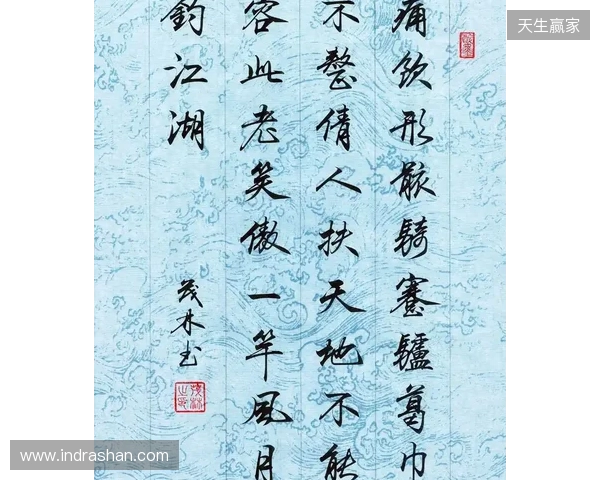 天生赢家
痛飲形骸騎蹇驢葛巾
不整倩人扶天地不能
容此老笑傲一竿風月
釣江湖
茂林书
www.indrashan.com